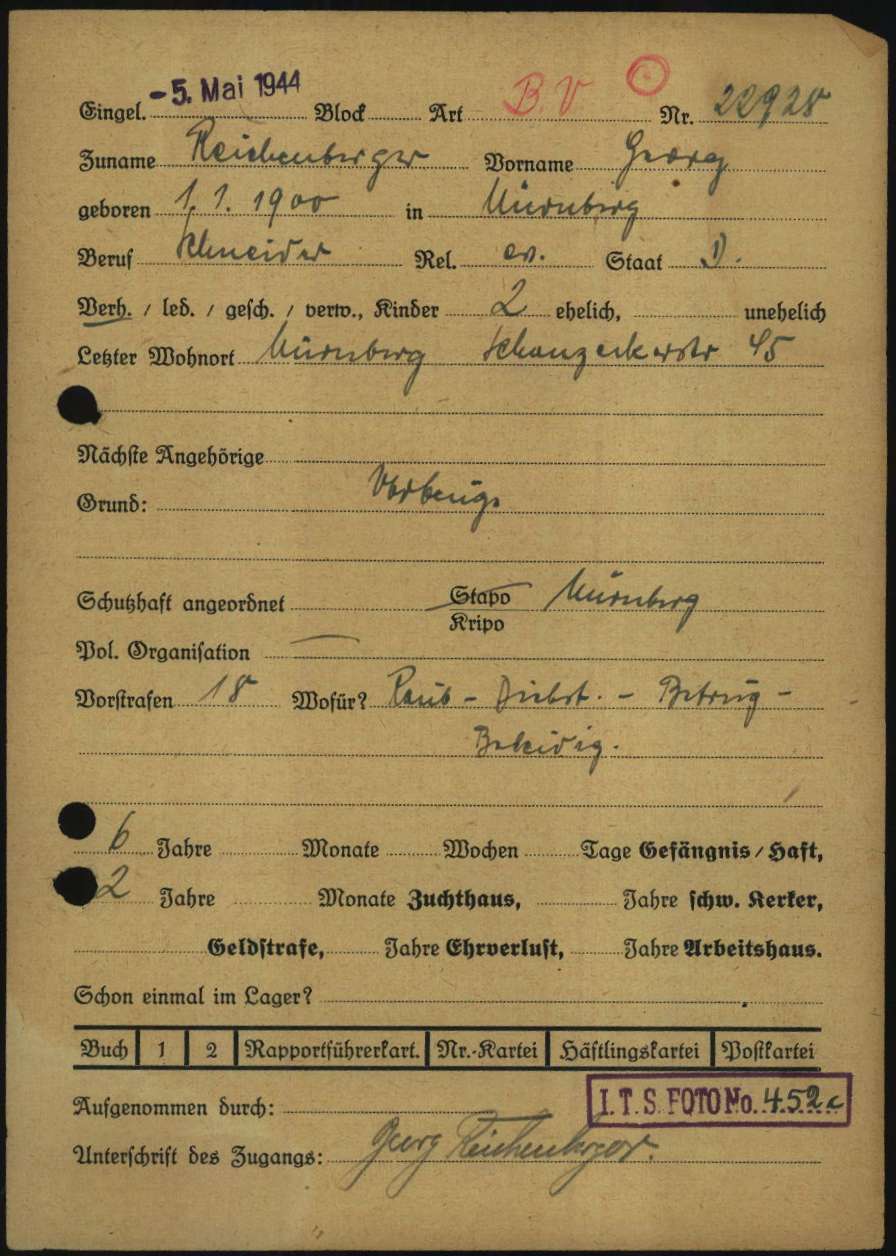 Eingel. -5. Mai 1944 Block Art B.V Nr. 22928
Zuname Reichenberger Vorname Georg
geboren 1.1.1900 in Nürnberg
Beruf Schneider Rel. ev. Staat D.
Verh. / led. / gesch. / verw., Kinder 2 ehelich, unehelich
Letzter Wohnort Nürnberg 45
Nächste Angehörige
Grund: Vorbeug.
Schutzhaft angeordnet Stapo Nürnberg
Kripo
Pol. Organisation —
Vorstrafen 18 Wofür? Raub - Diebst. - Betrug -
Beleidig.
6 Jahre Monate Wochen Tage Gefängnis / Haft,
2 Jahre Monate Zuchthaus, Jahre schw. Kerker,
Geldstrafe, Jahre Ehrverlust, Jahre Arbeitshaus.
Schon einmal im Lager?
Buch 1 2 Rapportführerkart. Nr.-Kartei Häftlingskartei Postkartei
Aufgenommen durch: I.T.S. FOTO No. 452c
Unterschrift des Zugangs: Georg Reichenberger.